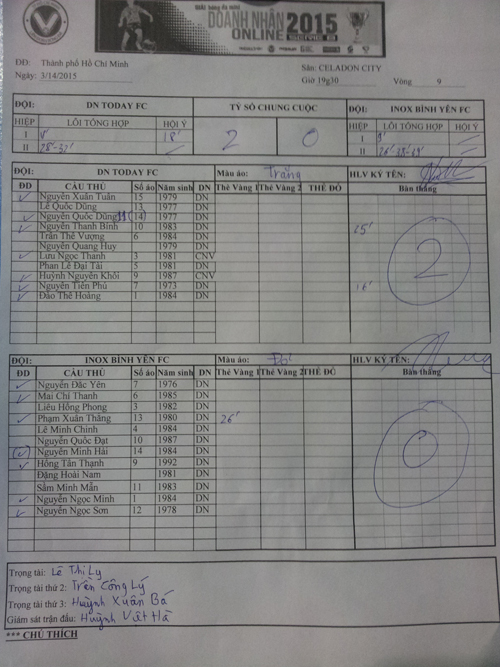 GIẢI BÓNG ĐÁ MINI
DOANH NHÂN 2015
ONLINE SERIE B
ĐĐ: Thành phố Hồ Chí Minh
Sân: CELADON CITY
Ngày: 3/14/2015
Giờ 19g30 Vòng 9
ĐỘI: DN TODAY FC TỶ SỐ CHUNG CUỘC ĐỘI: INOX BÌNH YÊN FC
HIỆP LỖI TỔNG HỢP HỘI Ý 2 0 HIỆP LỖI TỔNG HỢP HỘI Ý
I 18' I
II II
ĐỘI: DN TODAY FC Màu áo: Trắng HLV KÝ TÊN:
ĐD CẦU THỦ Số áo Năm sinh DN Thẻ Vàng 1 Thẻ Vàng 2 THẺ ĐỎ Bàn thắng
Nguyễn Xuân Tuấn 15 1979 DN
Lê Quốc Dũng 13 1977 DN
Nguyễn Quốc Dũng 11 (14) 1977 DN
Nguyễn Thanh Bình 10 1983 DN
Trần Thế Vượng 6 1984 DN
Nguyễn Quang Huy 1979 DN
Lưu Ngọc Thanh 3 1981 CNV
Phan Lê Đại Tài 5 1981 DN
Huỳnh Nguyên Khôi 9 1987 CNV
Nguyễn Tiến Phú 7 1973 DN
Đào Thế Hoàng 1 1984 DN
2
ĐỘI: INOX BÌNH YÊN FC Màu áo: Đỏ HLV KÝ TÊN:
ĐD CẦU THỦ Số áo Năm sinh DN Thẻ Vàng 1 Thẻ Vàng 2 THẺ ĐỎ Bàn thắng
Nguyễn Đắc Yên 7 1976 DN
Mai Chí Thanh 6 1985 DN
Liêu Hồng Phong 3 1982 DN
Phạm Xuân Thăng 13 1980 DN 26'
Lê Minh Chinh 4 1984 DN
Nguyễn Quốc Đạt 10 1987 DN
Nguyễn Minh Hải 14 1984 DN
Hồng Tấn Thạnh 9 1992 DN
Đặng Hoài Nam 1981 DN
Sầm Minh Mẫn 11 1983 DN
Nguyễn Ngọc Minh 1 1984 DN
Nguyễn Ngọc Sơn 12 1978 DN
0
Trọng tài: Lê Thi Ly
Trọng tài thứ 2: Trần Công Lý
Trọng tài thứ 3: Huỳnh Xuân Bá
Giám sát trận đấu: Huỳnh Việt Hà
*** CHÚ THÍCH